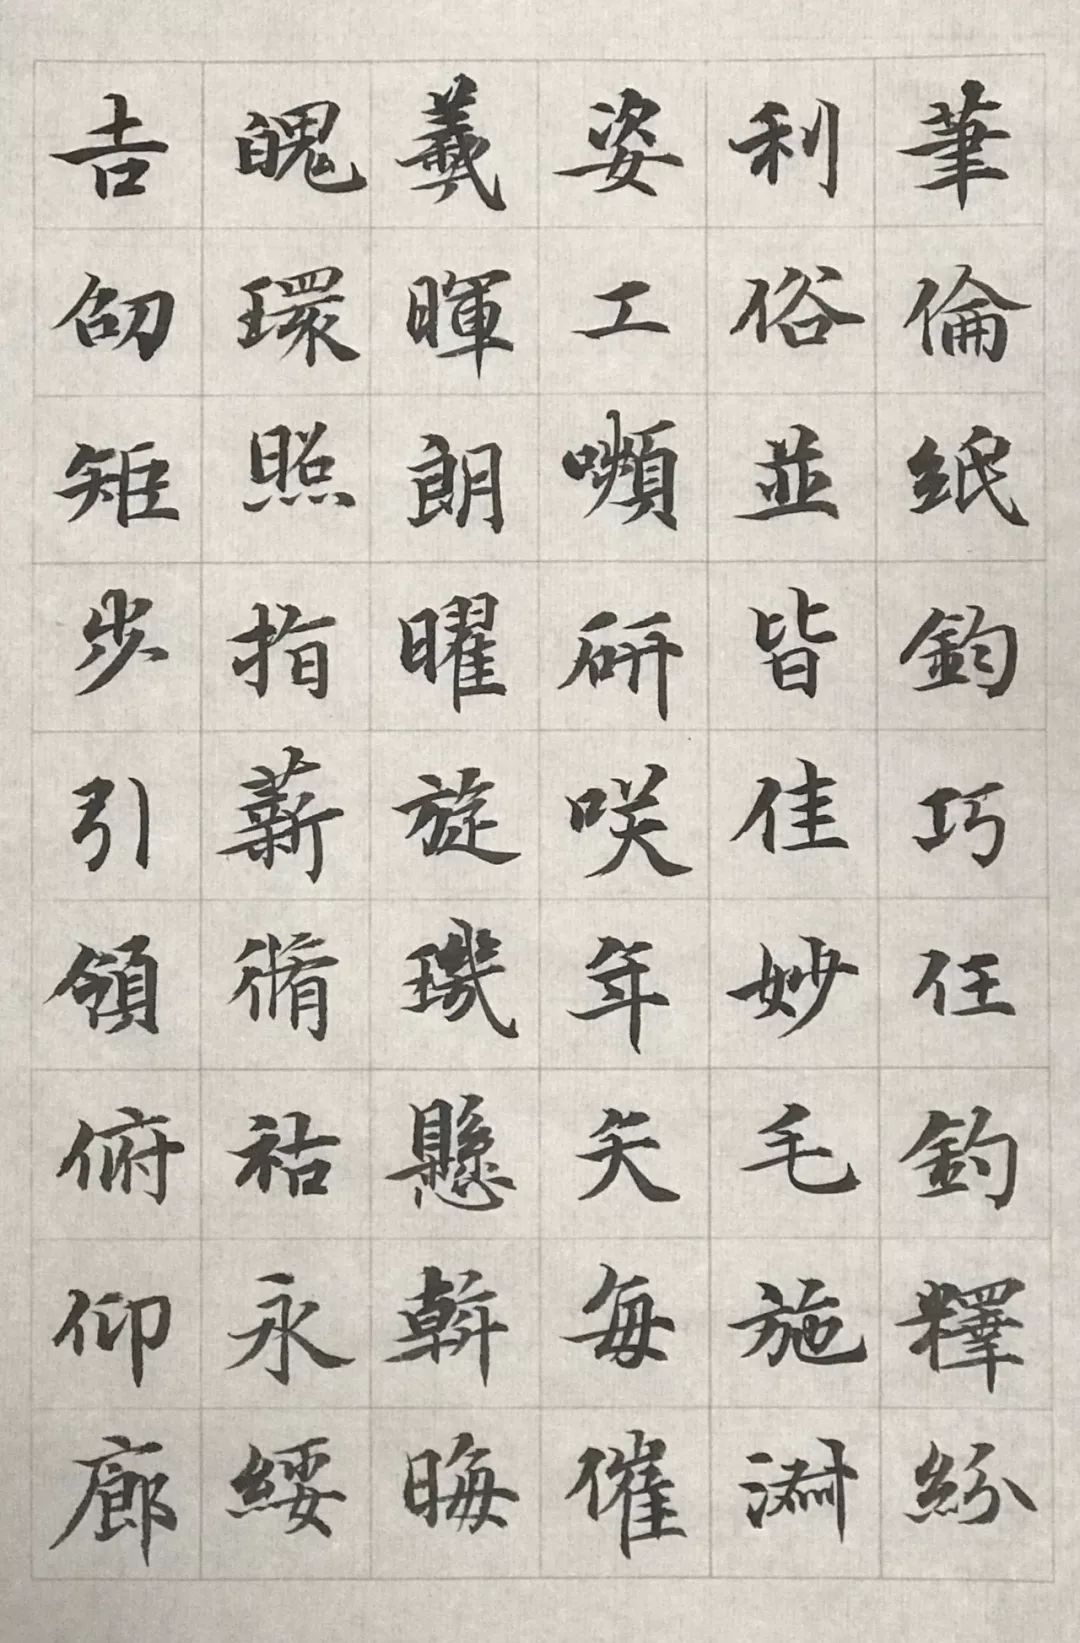 筆倫紙鈞巧任釣釋紛
利俗並皆佳妙毛施淑
姿工嚬研咲年矢每催
羲暉朗曜旋璣懸斡晦
魄環照指薪脩祜永綏
吉劭矩步引領俯仰廊